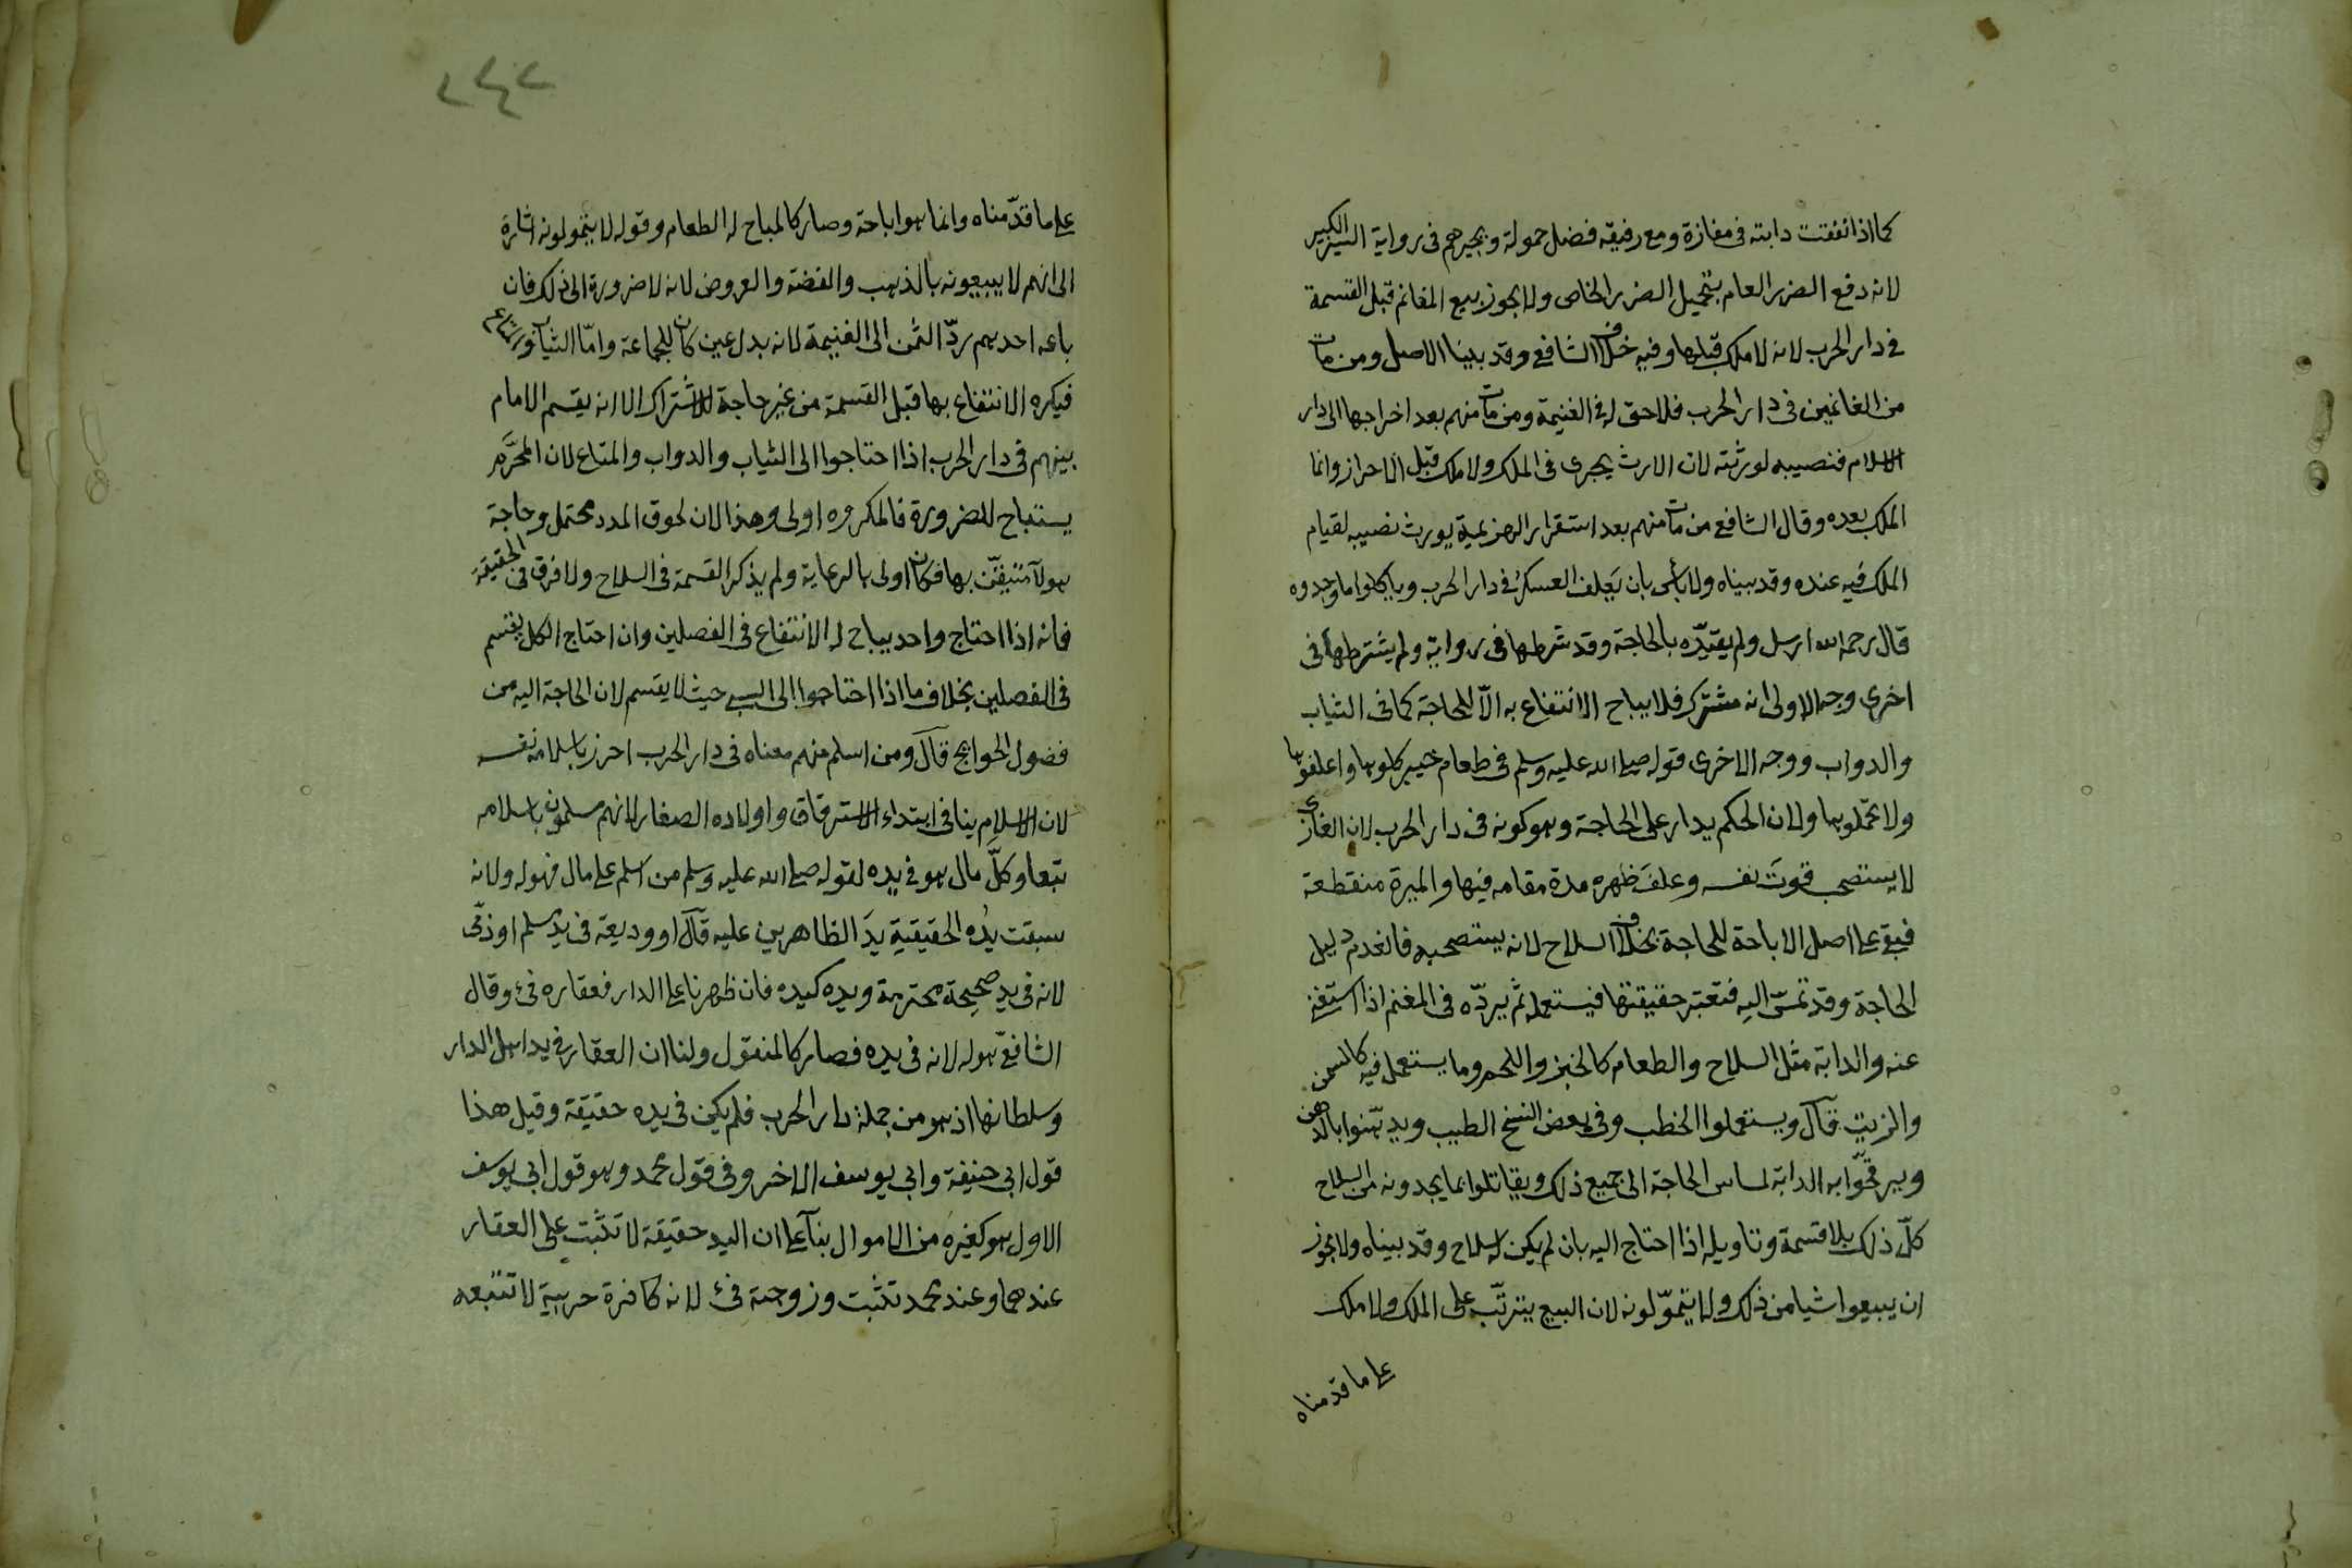 كما اذا نفقت دابته فى مفازة ومع رفيقه فضل حمولة ويجبرهم فى رواية السير الكبير
لانه دفع الضرر العام بتحميل الضرر الخاص ولا يجوز بيع المغانم قبل القسمة
فى دار الحرب لانه لا ملك قبلها وفيه خلاف الشافعى وقد بينا الاصل ومن مات
من الغانمين فى دار الحرب فلا حق له فى الغنيمة ومن مات منهم بعد اخراجها الى دار
الاسلام فنصيبه لورثته لان الارث يجرى فى الملك ولا ملك قبل الاحراز وانما
الملك بعده وقال الشافعى من مات منهم بعد استقرار الهزيمة يورث نصيبه لقيام
الملك فيه عنده وقد بيناه ولا بأس بان يَعلف العسكرُ فى دار الحرب وياكلوا ما وجدوه
قال رحمه الله ارسل ولم يقيّده بالحاجة وقد شرطها فى رواية ولم يشترطها فى
اخرى وجه الاولى انه مشترك فلا يباح الانتفاع به الّا للحاجة كما فى الثياب
والدواب ووجه الاخرى قوله صلى الله عليه وسلم فى طعام خيبر كلوها واعلفوها
ولا تحملوها ولان الحكم يدار على الحاجة وهو كونه فى دار الحرب لان الغازى
لا يستصحب قوتَ نفسه وعلفَ ظهره مدة مقامه فيها والميرة منقطعة
فبقى على اصل الاباحة للحاجة بخلاف السلاح لانه يستصحبه فانعدم دليل
الحاجة وقد تمسّ اليه فتعتبر حقيقتها فيستعمله ثم يردّه فى المغنم اذا استغنى
عنه والدابة مثل السلاح والطعام كالخبز واللحم وما يستعمل فيه كالسمن
والزيت قال ويستعملوا الحطب وفى بعض النسخ الطيب ويدهنوا بالدهن
ويرقحوا به الدابة لمساس الحاجة الى جميع ذلك ويقاتلوا بما يجدونه من السلاح
كلّ ذلك بلا قسمة وتاويله اذا احتاج اليه بان لم يكن له سلاح وقد بيناه ولا يجوز
ان يبيعوا شيا من ذلك ولا يتموّلونه لان البيع يترتّب على الملك ولا ملك
على ما قدمناه
٢٤٢
على ما قدّمناه وانما هو اباحة وصار كالمباح له الطعام وقوله لا يتمولونه اشارة
الى انهم لا يبيعونه بالذهب والفضة والعروض لانه لا ضرورة الى ذلك فان
باعه احدهم ردّ الثمن الى الغنيمة لانه بدل عين كان للجماعة وامّا الثياب والمتاع
فيكره الانتفاع بها قبل القسمة من غير حاجة للاشتراك الا انه يقسم الامام
بينهم فى دار الحرب اذا احتاجوا الى الثياب والدواب والمتاع لان المحَرَّم
يستباح للضرورة فالمكروه اولى وهذا لان لحوق المدد محتمل وحاجة
هولآ متيقّن بها فكان اولى بالرعاية ولم يذكر القسمة فى السلاح ولا فرق فى الحقيقة
فانه اذا احتاج واحد يباح له الانتفاع فى الفصلين وان احتاج الكل يقسم
فى الفصلين بخلاف ما اذا احتاجوا الى السبى حيث لا يقسم لان الحاجة اليه من
فضول الحوايج قال ومن اسلم منهم معناه فى دار الحرب احرز باسلامه نفسه
لان الاسلام ينافى ابتداء الاسترقاق واولاده الصغار لانهم مسلمون باسلامه
تبعا وكلّ مال هو فى يده لقوله صلى الله عليه وسلم من اسلم على مال فهو له ولانه
سبقت يدُه الحقيقية يدَ الظاهرين عليه قال او وديعة فى يد مسلم او ذمّى
لانه فى يدٍ صحيحة محترمة ويده كيده فان ظهرنا على الدار فعقاره فئ وقال
الشافعىّ هو له لانه فى يده فصار كالمنقول ولنا ان العقار فى يد اهل الدار
وسلطانها اذ هو من جملة دار الحرب فلم يكن فى يده حقيقة وقيل هذا
قول ابى حنيفة وابى يوسف الاخر وفى قول محمد وهو قول ابى يوسف
الاول هو كغيره من الاموال بنآ على ان اليد حقيقة لا تثبت على العقار
عندهما وعند محمد تثبت وزوجته فئ لانه كافرة حربية لا تتبعه